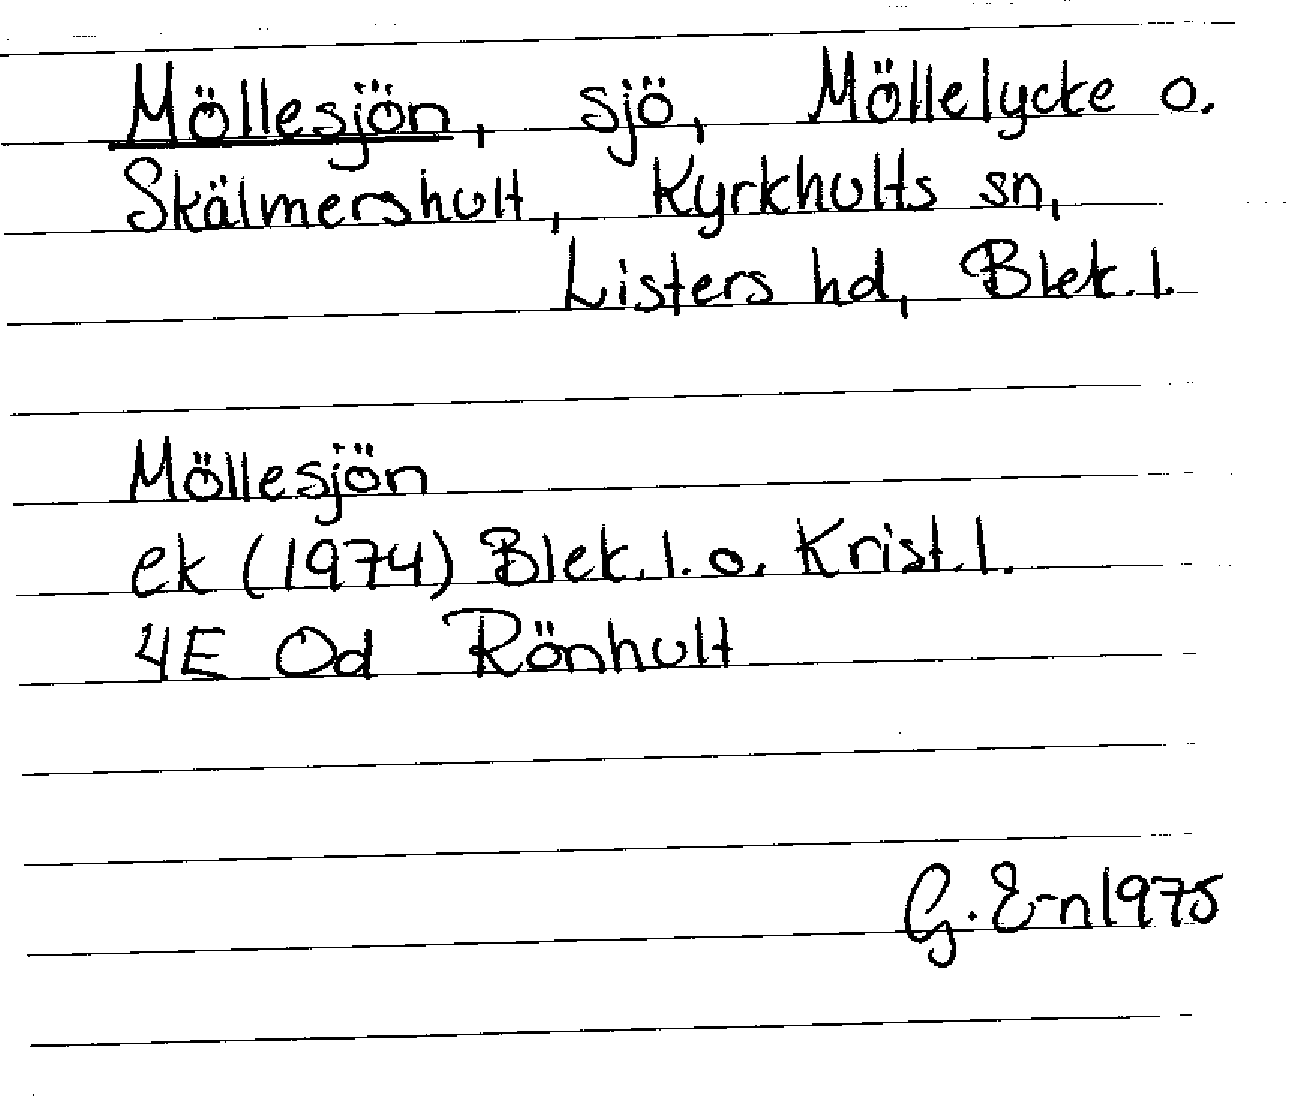 Möllesjön, sjö, Möllelycke o.
Skälmershult, Kyrkhults sn,
Listers hd, Blek. l.
Möllesjön
ek (1974) Blek. l. o. Krist. l.
4E Od Rönhult
G. E-n 1975